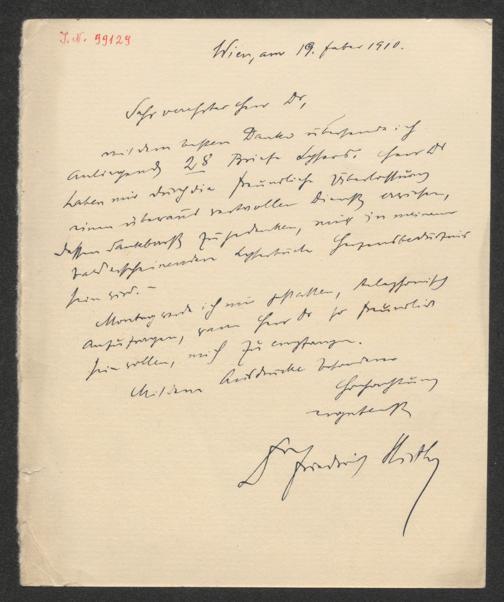 I.N. 99129
Wien, am 19. Feber 1910.
Sehr verehrter Herr Dr,
mit dem besten Danke übersende ich
anliegend 28 Briefe Lysers. Herr Dr
haben mir durch die freundliche Überlassung
einen überaus wertvollen Dienst erwiesen,
dessen dankbarst zu gedenken, mich in meinem
bald erscheinenden Lyserbuche Herzensbedürfnis
sein wird. –
Montag werde ich mir gestatten, telephonisch
anzufragen, wann Herr Dr so freundlich
sein wollen, mich zu empfangen.
Mit dem Ausdrucke besonderer
Hochachtung
ergebenst
Dr Friedrich Hirth